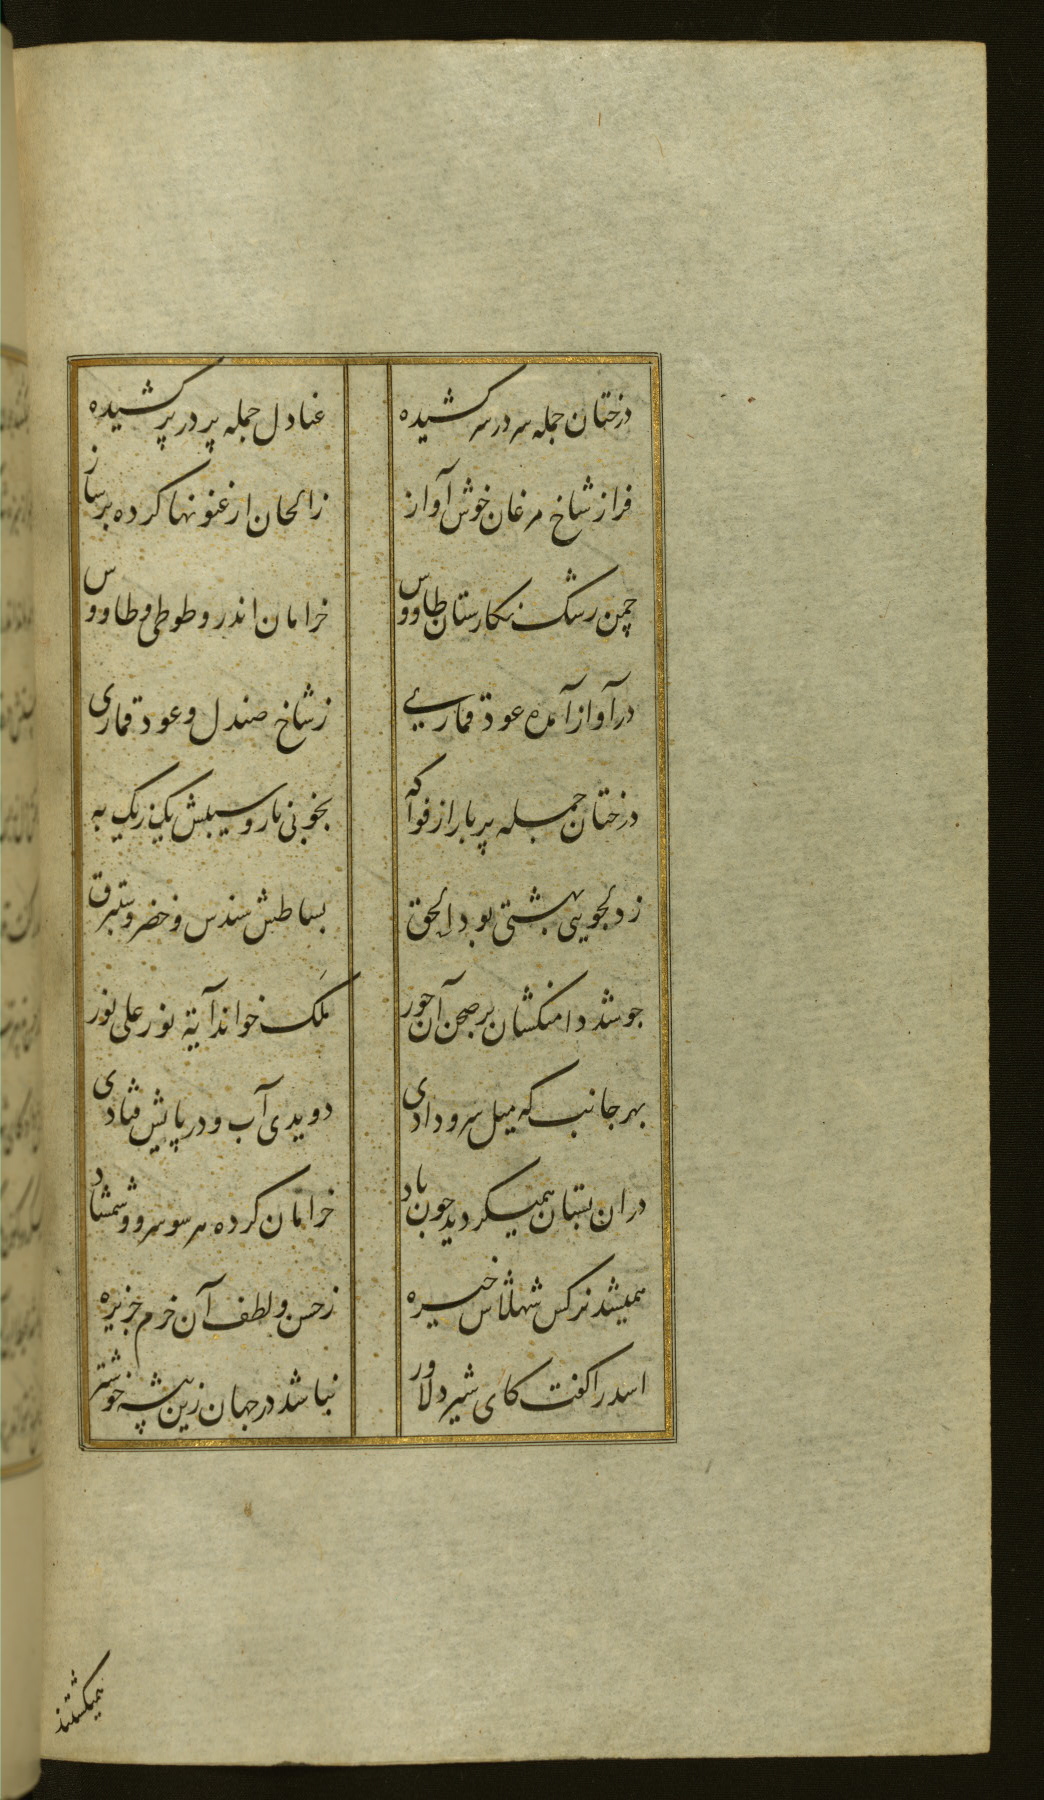 درختان جمله سر در سر کشیده
عنادل جمله پر در پر کشیده
فراز شاخ مرغان خوش آواز
ز الحان ارغنونها کرده بر ساز
چمن رشک نکارستان طاووس
خرامان اندرو طوطی و طاووس
در آواز آمده عود قماری
ز شاخ صندل و عود قماری
درختان جمله پر بار از فواکه
بخوبی نار و سیبش یک ز یک به
ز دلجویی بهشتی بود الحق
بساطش سندس و خضر و ستبرق
جو شد دامنکشان بر صحن آن حور
ملک خواند آیة نور علی نور
بهر جانب که میل سرو دادی
دویدی آب و در پایش فتادی
در ان بستان همیکردید جون باد
خرامان کرده هر سو سرو و شمشاد
همیشد نرکس شهلاش خیره
ز حسن و لطف آن خرم جزیره
اسد را کفت کای شیر دلاور
نباشد در جهان زین بیشه خوشتر
همیکشتند